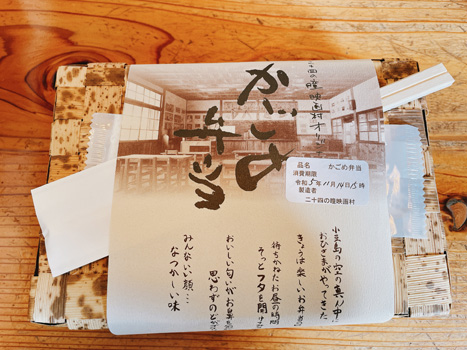 二十四の瞳映画村オリ
かごめ
弁当
品名 かごめ弁当
消費期限
令和5年11月14日15時
製造者
二十四の瞳映画村
小豆島の空の真ん中
おひさまがやってきた
きょうは楽しいお弁当
待ちかねたお昼の時間
そっとフタを開ける
おいしい匂いがお鼻を
思わずのど
みんないい顔…
なつかしい味